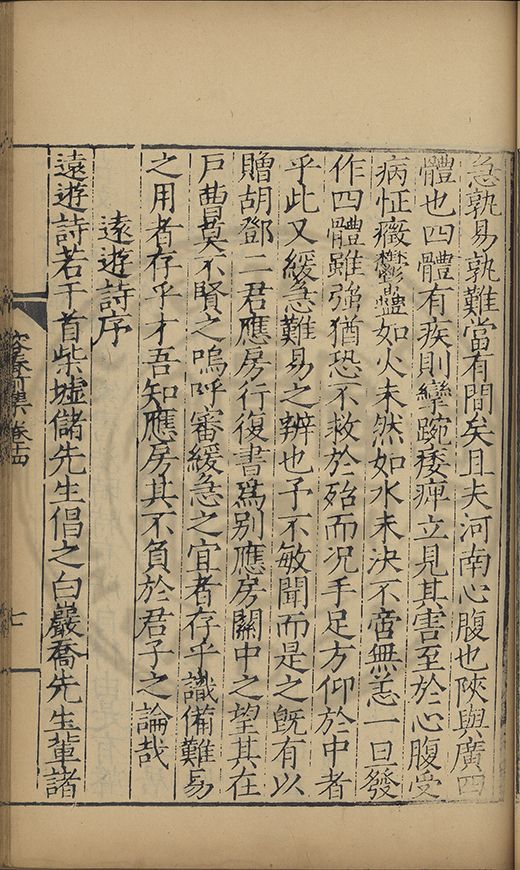 急孰易孰難當有間矣且夫河南心腹也陝與廣四
體也四體有疾則攣踠痿痺立見其害至於心腹受
病怔癥鬱蠱如火未然如水未決不啻無恙一旦發
作四體雖強猶恐不救於殆而况手足方仰於中者
乎此又緩急難易之辨也予不敏聞而是之旣有以
贈胡鄧二君應房行復書爲別應房關中之望其在
戶曹莫不賢之嗚呼審緩急之宜者存乎識備難易
之用者存乎才吾知應房其不負於君子之論哉
遠遊詩序
遠遊詩若干首柴墟儲先生倡之白巖喬先生軰諸
前集 卷十四
七